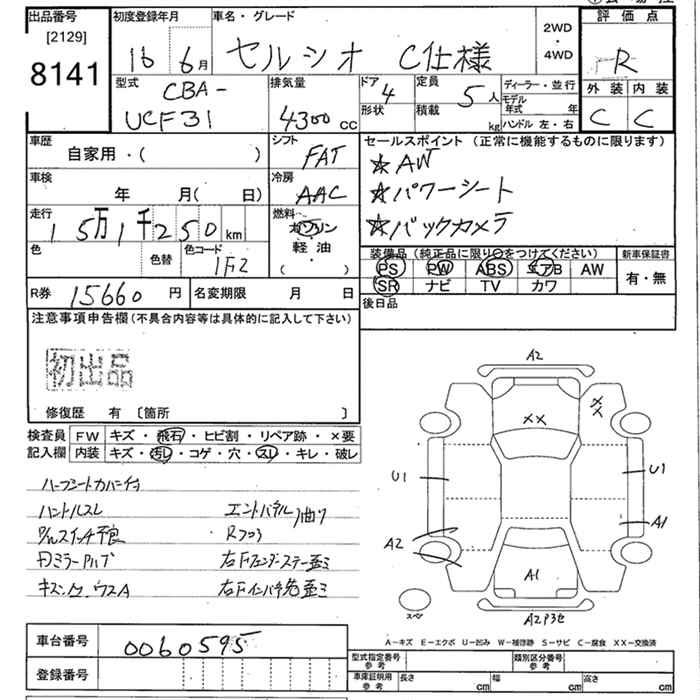 出品番号 初度登録年月 車名・グレード 評価点
[2129]
8141
16 6月 セルシオ C仕様 2WD・4WD R
型式 排気量 ドア 定員 ディーラー・並行 外装 内装
CBA-
UCF31 4300cc 4 5人 モデル年式 年 C C
形状 積載 kg ハンドル 左・右
車歴 シフト セールスポイント (正常に機能するものに限ります)
自家用・( ) FAT ☆AW
車検 冷房 ☆パワーシート
年 月( 日) AAC
走行 燃料 ☆バックカメラ
15万1千250km ガソリン
軽油
( )
色 色替 色コード
1F2
装備品(純正品に限り○をつけてください) 新車保証書
PS PW ABS エアB AW 有・無
SR ナビ TV カワ
R券 15660円 名変期限 月 日 後日品
注意事項申告欄(不具合内容等は具体的に記入して下さい)
初出品
修復歴 有 〔箇所 〕
検査員 FW キズ・飛石・ヒビ割・リペア跡・×要
記入欄 内装 キズ・汚し・コゲ・穴・スレ・キレ・破レ
ハンドルスレ エンドパネル曲り
P/Wスイッチ不良
右Fフェンダーステー歪ミ
右Fインパネ先歪ミ
A2
XX XX
U1 U1
A2 A1
A1
スペア A2P3セ
A-キズ E-エクボ U-凹み W-補修跡 S-サビ C-腐食 XX-交換済
車台番号 0060595
登録番号
型式指定番号 参考 類別区分番号 参考
車庫証明用 参考 長さ cm 幅 cm 高さ cm